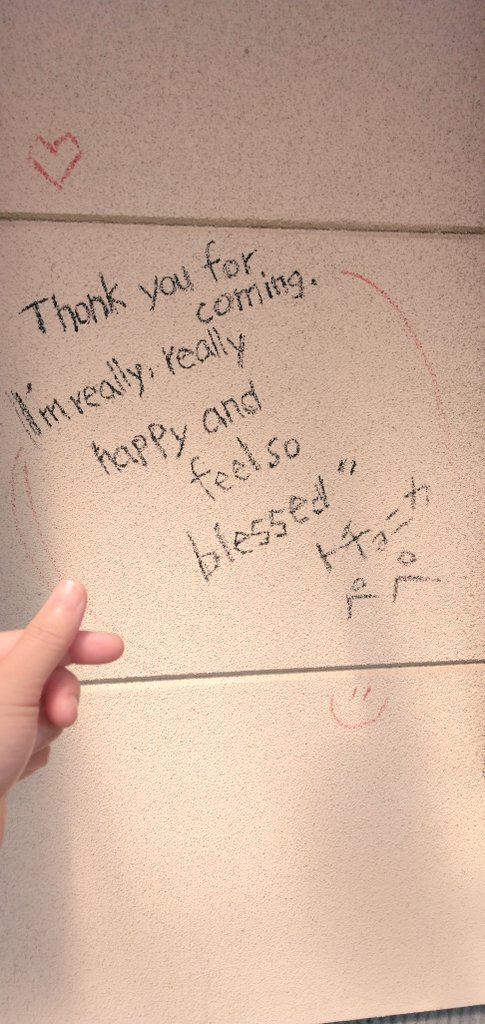 Thank you for
coming.
I'm really, really
happy and
feel so
blessed"